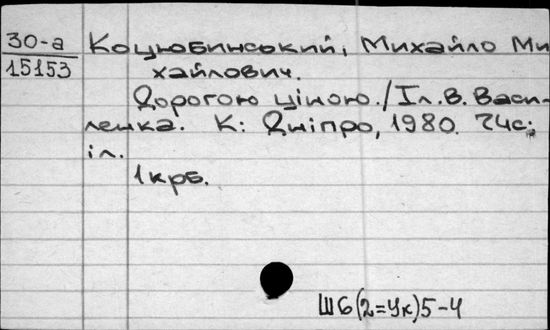 30-а Коцюбинський, Михайло Ми
15153 хайлович.
Дорогою ціною./Іл. В. Васи-
ленка. К: Дніпро, 1980. 74с:
іл.
1 крб.
Ш6(2=Ук)5-4